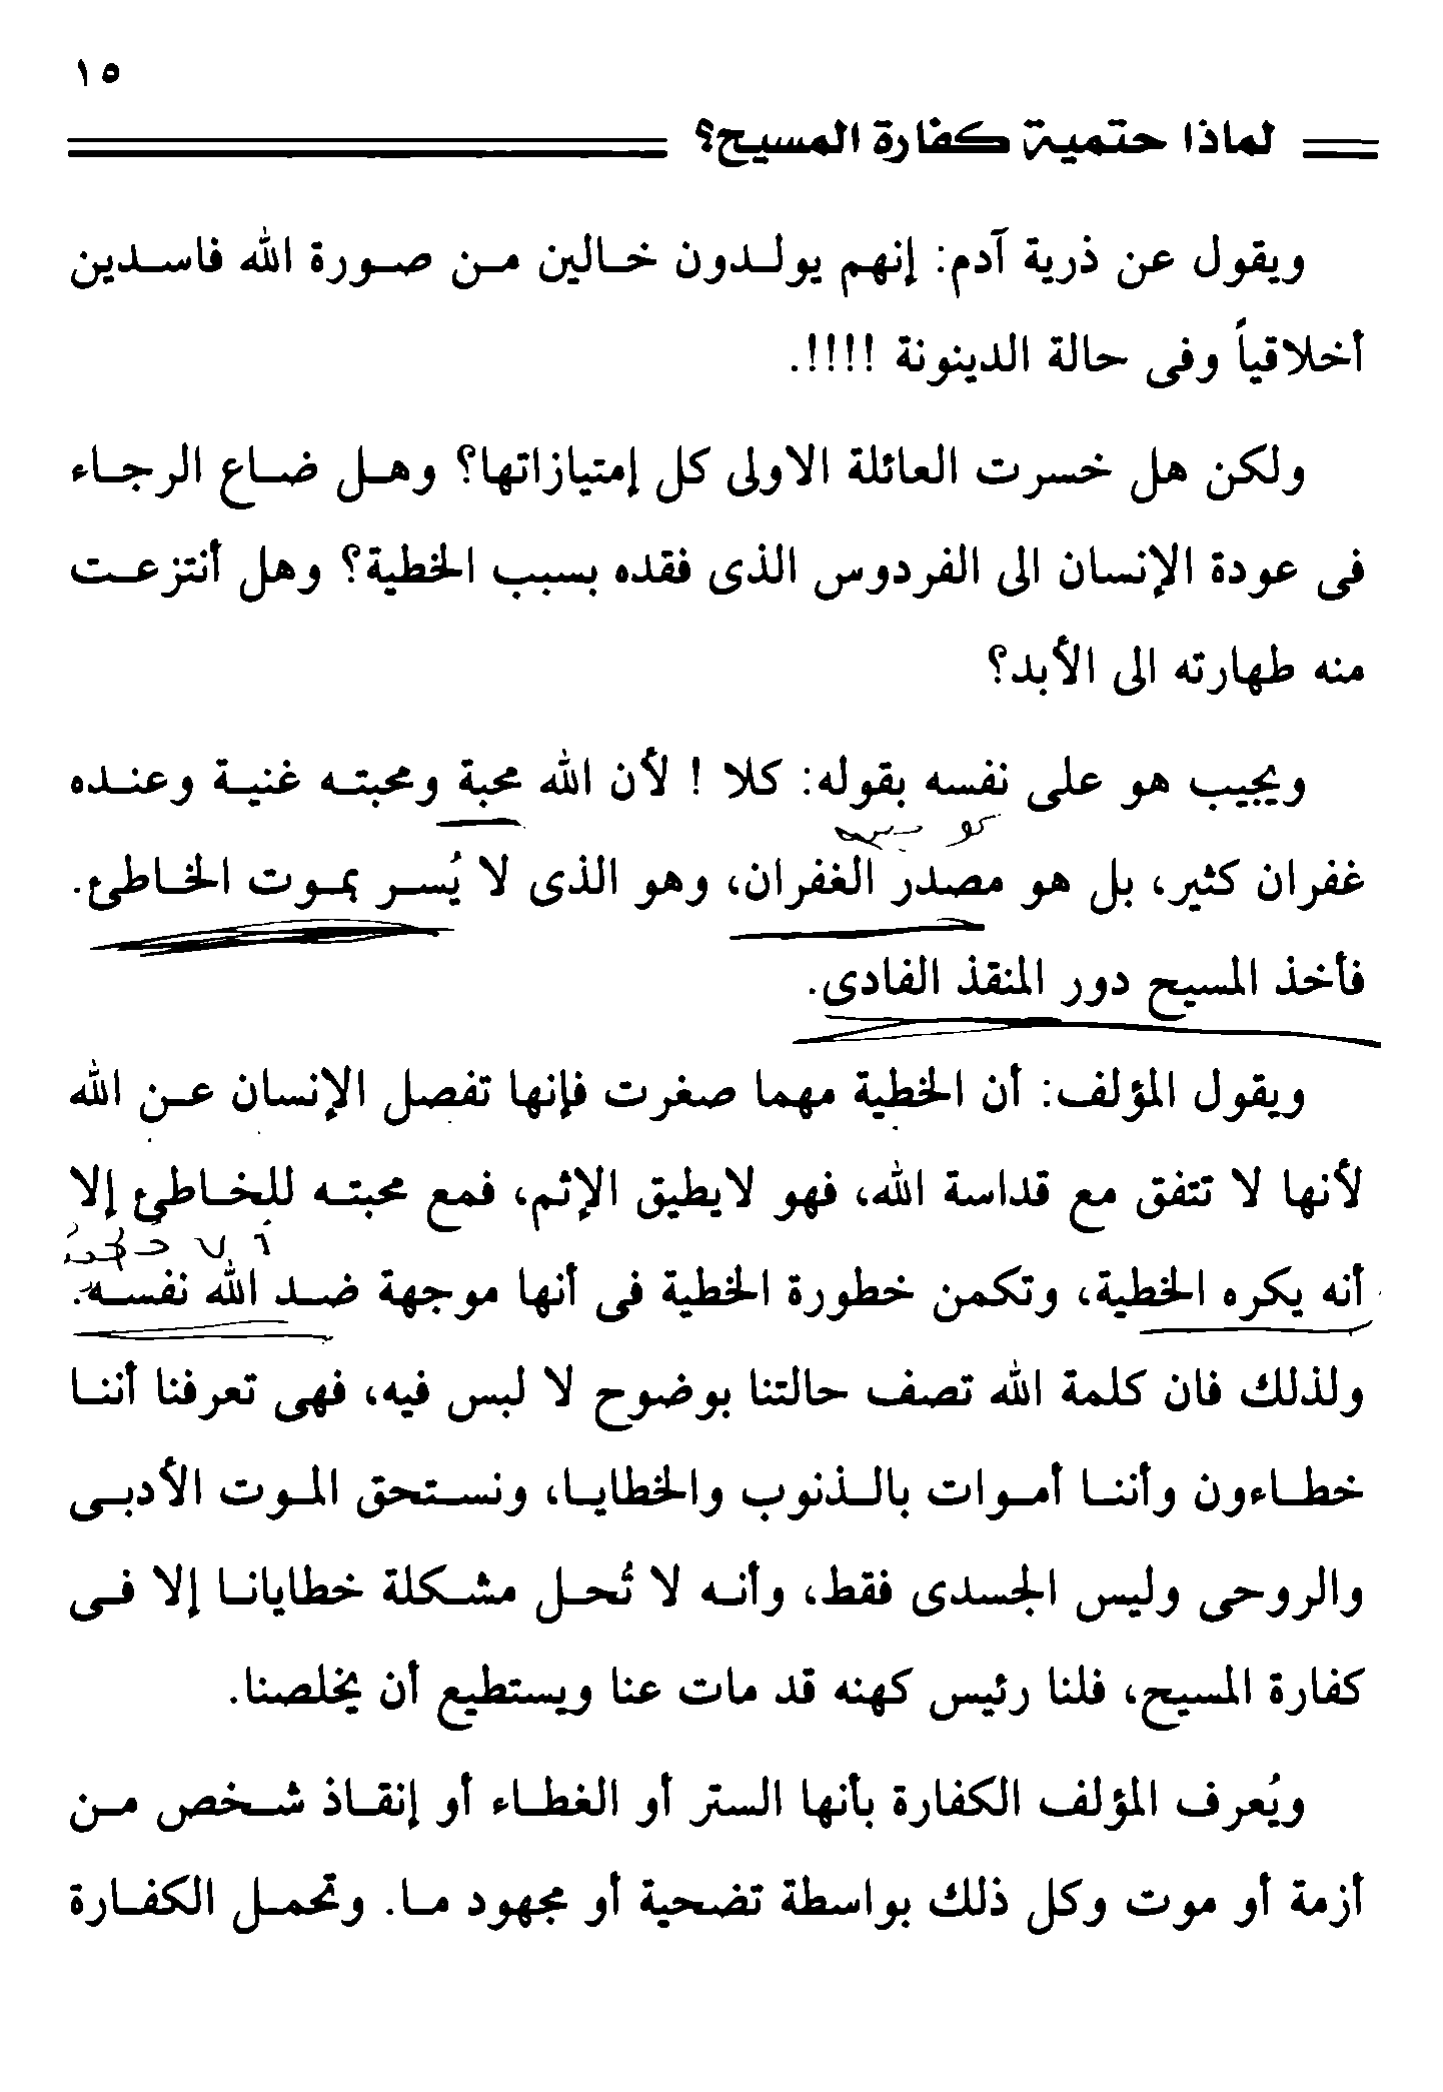 ١٥
لماذا حتمية كفارة المسيح؟
ويقول عن ذرية آدم: إنهم يولدون خالين من صورة الله فاسدين
أخلاقياً وفى حالة الدينونة !!!!.
ولكن هل خسرت العائلة الاولى كل إمتيازاتها؟ وهل ضاع الرجاء
فى عودة الإنسان الى الفردوس الذى فقده بسبب الخطية؟ وهل أنتزعت
منه طهارته الى الأبد؟
ويجيب هو على نفسه بقوله: كلا ! لأن الله محبة ومحبته غنية وعنده
غفران كثير، بل هو مصدر الغفران، وهو الذى لا يُسر بموت الخاطئ.
فأخذ المسيح دور المنقذ الفادى.
ويقول المؤلف: أن الخطية مهما صغرت فإنها تفصل الإنسان عن الله
لأنها لا تتفق مع قداسة الله، فهو لايطيق الإثم، فمع محبته للخاطئ إلا
أنه يكره الخطية، وتكمن خطورة الخطية فى أنها موجهة ضد الله نفسه.
ولذلك فان كلمة الله تصف حالتنا بوضوح لا لبس فيه، فهى تعرفنا أننا
خطاءون وأننا أموات بالذنوب والخطايا، ونستحق الموت الأدبى
والروحى وليس الجسدى فقط، وأنه لا تُحل مشكلة خطايانا إلا فى
كفارة المسيح، فلنا رئيس كهنه قد مات عنا ويستطيع أن يخلصنا.
ويُعرف المؤلف الكفارة بأنها الستر أو الغطاء أو إنقاذ شخص من
أزمة أو موت وكل ذلك بواسطة تضحية أو مجهود ما. وتحمل الكفارة